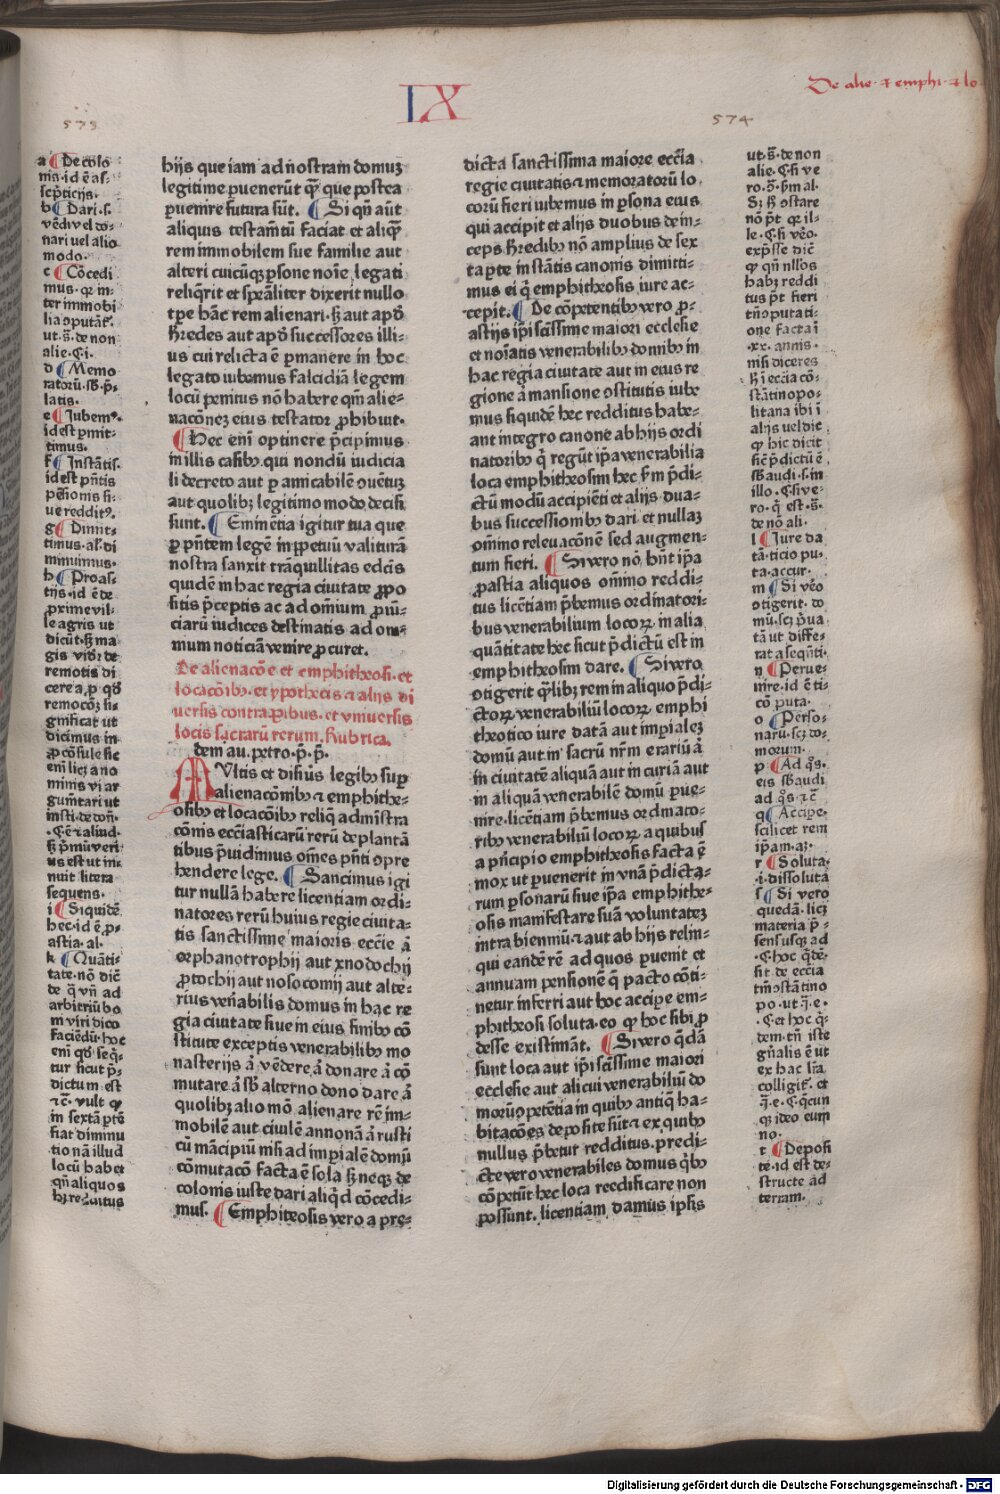 IX
De alie· ⁊ emphi· ⁊ lo
573
574
a De colo
nis·id ē as-
sc̄pticijs.
b Dari·s.
vēdi vel do-
nari uel alio
modo·
c Cōcedi
mus· qꝛ in-
ter immobi
lia
ut·s̄·de non
alie·C̄·i·
d Memo
ratorū·sb̄·p̄-
latis·
e Iubemꝰ·
id est p̄mit-
timus·
f Instātis·
id est pn̄tis
pēsionis si-
ue redditꝰ·
g Dimit-
timus·al·di
minuimus·
h Proas-
tijs·id ē de
ꝓxime vil-
le agris ut
dicūt·sꝫ ma
gis vidr̄ de
remotis di
cere a, ꝓ qd̄
remocōꝫ si-
gnificat ut
dicimus in
ꝓcōsule sic
eni licꝫ a no
minis vi ar
gumtari ut
insti·de don̄·
·C̄ ē ⁊ aliud·
sꝫ p̄mū veri
us est ut in-
nuit litera
sequens·
i Siquidē
hec·id ē ꝓ-
astia·al·
k Quāti-
tate·nō dic̄
de q̄ vn̄ ad
arbitriū bo
ni viri dico
faciēdū·hoc
eni qd̄ seq̄-
tur sicut p̄-
dictum est
⁊c̄· vult qꝫ
in sextā ptē
fiat diminu
tio nā illud
locū habet
qn̄ aliquos
hꝫ redditus
hijs que iam ad nostram domuꝫ
legitime ꝑuenerūt q̄ꝫ que postea
ꝑuenire futura sūt. Si qn̄ aūt
aliquis testamētū faciat et aliqꝫ
rem immobilem siue familie aut
alteri cuicūqꝫ ꝑsone noīe legati
reliq̄rit et spēaliter dixerit nullo
tꝑe hāc rem alienari·sꝫ aut apd̄
heredes aut apd̄ successores illi-
us cui relicta ē ꝑmanere in hoc
legato iubemus falcidiā legem
locū penitus nō habere qm̄ alie-
nacōneꝫ eius testator ꝓhibuit·
Hec eni optinere p̄cipimus
in illis casibꝫ qui nondū iudicia
li decreto aut ꝑ amicabilē ouētuꝫ
aut quolibꝫ legitimo modo decisi
sunt. Eminētia igitur tua que
ꝑ pn̄tem legē in ꝑpetuū valiturā
nostra sanxit trāquillitas edcīs
quidē in hac regia ciuitate ꝓpo
sitis p̄ceptis ac ad omīum ꝓuī-
ciarū iudices destinatis ad om-
nium noticiā venire ꝓcuret.
De alienacōe et emphitheosi·et
locacōibꝫ·et ypothecis ⁊ alijs di
uersis contra꜀tibus·et vniuersis
locis sacrarū rerum. Rubrica.
Idem au. petro·p̄·p̄·
Multis et disiūs legibꝫ sup
alienacōnibꝫ ⁊ emphithe-
osibꝫ et locacōibꝫ reliq̄ admistra
cōnis ecc̄iasticarū rerū de plantā
tibus p̄uidimus om̄es pn̄ti opre
hendere lege. Sancimus igi
tur nullā habere licentiam ordi-
natores rerū huius regie ciuita-
tis sanctissime maioris ecc̄ie ā
orphanotrophij aut xnodochij
ꝓtochij aut nosocomij aut alte-
rius ven̄abilis domus in hac re
gia ciuitate siue in eius finibꝫ cō
stitute exceptis venerabilibꝫ mo
nasterijs ā vēdere ā donare ā cō
mutare ā sb̄ alterno dono dare ā
quolibꝫ alio mō alienare rē im-
mobilē aut ciuilē annonā ā rusti
cū mācipiū nisi ad imꝑialē domū
cōmutacō facta ē sola sꝫ neqꝫ de
colonis iuste dari aliqd̄ cōcedi-
mus. Emphiteosis vero a pre-
dicta sanctissima maiore ecc̄ia
regie ciuitatis ⁊ memoratorū lo
corū fieri iubemus in ꝑsona eius
qui accipit et alijs duobus de in-
ceps heredibꝫ nō amplius de sex
ta pte instātis canonis dimitti-
mus ei q̄ emphitheosis iure ac-
cepit. De cōpetentibꝫ vero ꝓ-
astijs ipi scissime maiori ecclesie
et noīatis venerabilibꝫ domibꝫ in
hac regia ciuitate aut in eius re
gione ā mansione ostitutis iube
mus siquidē hec redditus habe-
ant integro canone ab hijs ordi
natoribꝫ q̄ regūt ipa venerabilia
loca emphitheosim hec sm p̄di-
ctū modū accipiēti et alijs dua-
bus successionibꝫ dari et nullaꝫ
omīmo releuacōnē sed augmen-
tum fieri. Si vero nō hn̄t ipa
ꝓastia aliquos omīmo reddi-
tus licētiam p̄bemus ordinatori-
bus venerabilium locoꝝ in alia
quātitate hec sicut p̄dictū est in
emphitheosim dare. Si vero
otigerit qlibꝫ rem in aliquo p̄di-
ctoꝝ venerabiliū locoꝝ emphi
theotico iure datā aut imꝑialeꝫ
domū aut in sacrū nr̄m erariū ā
in ciuitatē aliquā aut in curiā aut
in aliquā venerabilē domū ꝑue-
nire·licētiam p̄bemus ordinato-
ribꝫ venerabiliū locoꝝ a quibus
a pn̄cipio emphitheosis facta ē
mox ut ꝑuenerit in vnā p̄dicta-
rum ꝑsonarū siue ipa emphithe-
osis manifestare suā voluntateꝫ
intra bienniū·⁊ aut ab hijs relin-
qui eandē rē ad quos ꝑuenit et
annuam pensionē q̄ pacto cōti-
netur inferri aut hoc accipe em-
phitheosi soluta·eo qꝫ hoc sibi ꝓ
desse existimāt. Si vero q̄dā
sunt loca aut ipi scissime maiori
ecclesie aut alicui venerabiliū do
morū opetētia in quibꝫ antiq̄ ha-
bitacōes deposite sūt ⁊ ex quibꝫ
nullus p̄betur redditus. predi-
cte vero venerabiles domus q̄bꝫ
cōpetūt hec loca reedificare non
possunt. licentiam damus ipsis
ut·s̄·de non
alie·C̄·si ve
ro·s̄·sm al·
Sꝫ sꝫ ostare
nō p̄t qꝛ il-
le·C̄·si vēo·
exp̄sse dic̄
qꝫ qn̄ nllos
habꝫ reddi
tus p̄t fieri
tn̄ oputati-
one facta ī
·xx· annis·
nisi diceres
sꝫ ī ecc̄ia cō-
stātinopo-
litana ibi ī
alijs uel dic
qꝫ hic dicit
sic p̄dictū ē
sb̄audi·s·in
illo·C̄·si ve-
ro· q̄ est·s̄·
de nō ali·
l Iure da
tā·ticio pu-
ta·accur·
m Si vēo
otigerit· do
mū·scꝫ p̄ua
tā ut diffe-
rat a seqn̄ti·
n Perue-
nire·id ē ti-
cō puta·
o Perso-
narū·scꝫ do-
morum·
p Ad q̄s·
eis sb̄audi
ad q̄s·⁊c̄
q Accipe·
scilicet rem
ipam·aꝫ·
r Soluta·
·i·dissoluta
s Si vero
quedā·licꝫ
materia p̄-
sens usqꝫ ad
·C̄ hoc q̄dē·
sit de eccia
tm̄ ostātino
po·ut·q̄·e·
·C̄ et hoc q̄-
dem·tn̄ iste
gn̄alis ē ut
ex hac lr̄a
colligit̄· et
·q̄·e·C̄·q̄cun
qꝫ ideo eum
no·
t Deposi
te·id est de-
structe ad
terram·
Digitalisierung gefördert durch die Deutsche Forschungsgemeinschaft · DFG